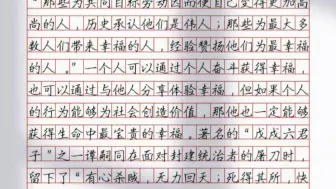 “那些为共同目标劳动因而使自己变得更加高
尚的人，历史承认他们是伟人；那些为最大多
数人们带来幸福的人，经验赞扬他们为最幸福
的人。”一个人可以通过个人奋斗获得幸福，
也可以通过与他人分享体验幸福，但如果个人
的行为能够为社会创造价值，那他也一定能够
获得生命中最宝贵的幸福。著名的“戊戌六君
子”之一谭嗣同在面对封建统治者的屠刀时，
留下了“有心杀贼，无力回天；死得其所，快